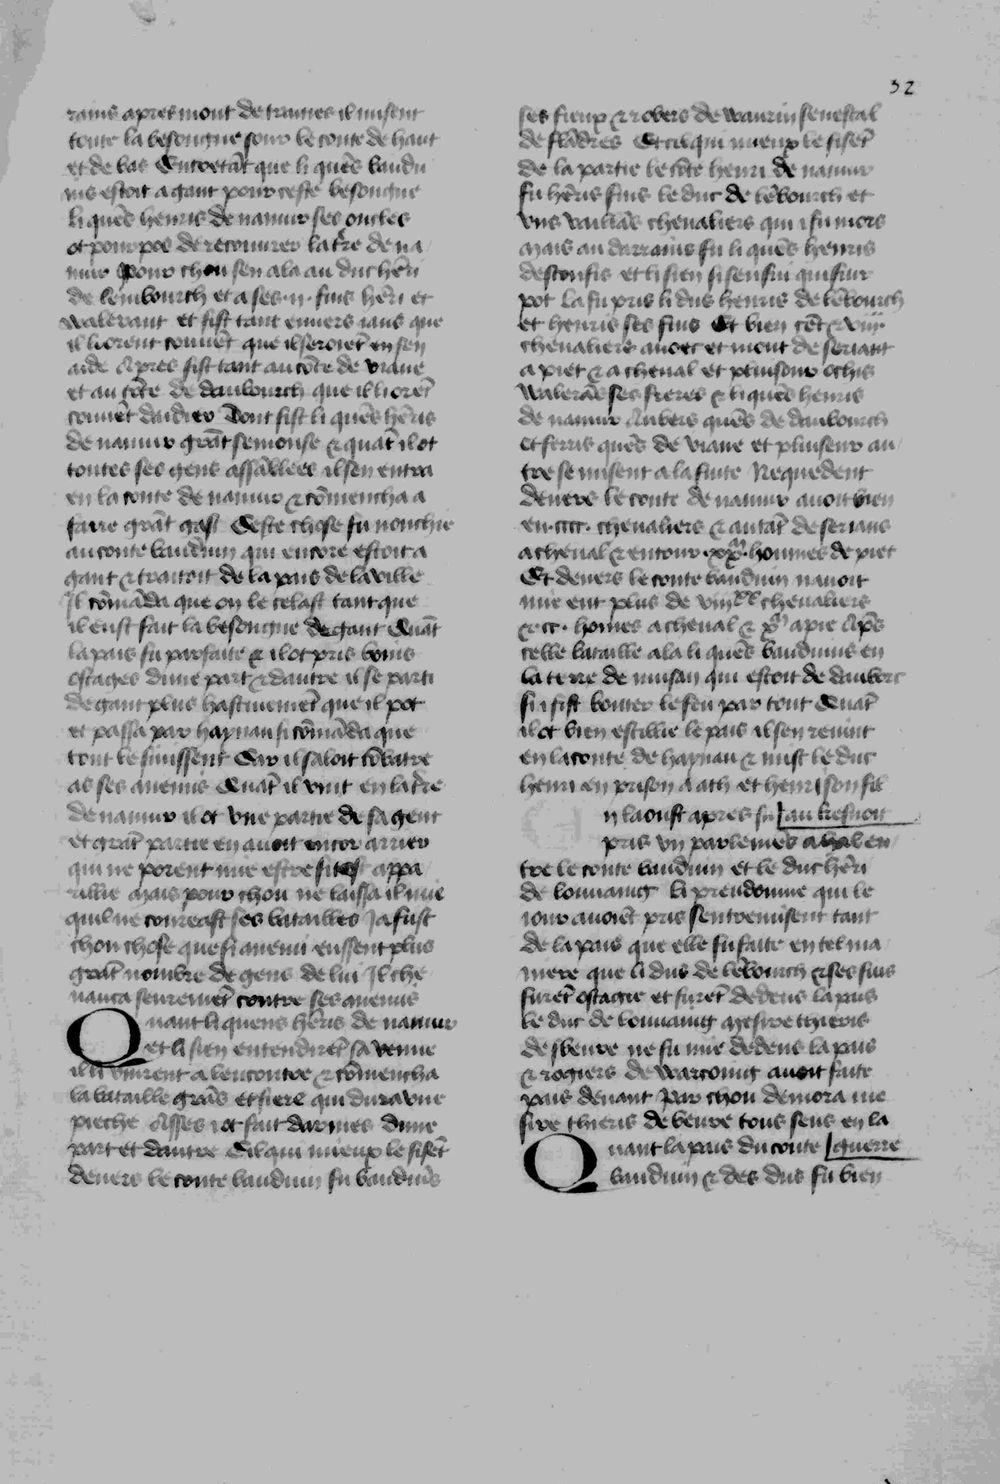 32
rains apres mont de traities il misent
toute la besongne sour le conte de haut
et de bas Entretāt que li quēs baudu
ins estoit a gant pour ceste besongne
li quēs henris de namur ses oncles
ot pourpos de recouvrer la tr̄e de na
mur pour chou sen ala au duc hēri
de lembourch et a ses .ii. fius hēri et
walerant et fist tant envers iaus que
il li orent couvēt que il seroiēt en sen
aide Apres fist tant au cōte de viane
et au cōte de daubourch que il li orēt
couvēt daidier Dont fist li quēs hēris
de namur grāt semonse & quāt il ot
toutes ses gens assāllees il sen entra
en la conte de namur & cōmencha a
faire grāt gast Ceste chose fu nonchie
au conte bauduin qui encore estoit a
gant & traitoit de la pais de la ville
Il cōmāda que on le celast tant que
il eust fait la besongne de gant Quāt
la pais fu parfaite & il ot pris bons
ostages dune part & dautre il se parti
de gant plus hastivemēt que il pot
et passa par haynau si cōmāda que
tout le sivissent Car il saloit cōbatre
as ses anemis Quāt il vint en la tr̄e
de namur il ot une partie de sa gent
et grāt partie en avoit encor arrier
qui ne porent mie estre si tost appa
rillie mais pour chou ne laissa il mie
quil ne conreast ses batailles Ja fust
chou chose que si anemi eussent plus
grāt nombre de gens de lui Il che
vauca seuremēt contre ses anemis
Quant li quens hēris de namur
et li sien entendirēt sa venue
il li vinrent a lencontre & cōmencha
la bataille grās et fiere qui dura une
pieche Asses i ot fait darmes dune
part et dautre Cil qui mieux le fisēt
devers le conte bauduin fu bauduīs
ses fieux & robers de waurin senescal
de flādres Et cil qui mieux le fisēt
de la partie le cōte henri de namur
fu hēris fius le duc de lēbourch et
uns vaillās chevaliers qui i fu mors
Mais au darrains fu li quēs henris
desconfis et li sien si sen fui qui fuir
pot La fu pris li dus henris de lēbourch
et henris ses fius Et bien cēt & viii.
chevaliers avoec et mont de seriant
a piet & a cheval et pluisour ochis
Walerās ses freres & li quēs henris
de namur Aubers quēs de daubourch
et ferris quēs de viane et pluiseur au
tre se misent a la fuite Nequedent
devers le conte de namur avoit bien
en .cccc. chevaliers & autāt de serians
a cheval & entour .xxm. hommes de piet
Et devers le conte bauduin navoit
mie ent plus de viiixx chevaliers
& cc. homes a cheval & xm a pie Apēs
celle bataille ala li quēs bauduins en
la terre de musau qui estoit de daubourc
si i fist bouter le feu par tout Quāt
il ot bien essillie le pais il sen revint
en la conte de haynau & mist le duc
henri en prison a ath et henri son fil
n laoust apres fu au kesnoit
pris un parlemēs a hal en
tre le conte bauduin et le duc hēri
de louvaing li preudomme qui le
iour avoiēt pris sentremisent tant
de la pais que elle fu faite en tel ma
niere que li dus de lēbourch & ses fius
furēt ostagie et furēt dedens la pais
le duc de louvaing Mesire thieris
de sbevre ne fu mie dedens la pais
& rogiers de warcoing avoit faite
pais devant Par chou demora me
sire thieris de bevre tous seus en la
Quant la pais du conte guerre
bauduin & des dus fu bien